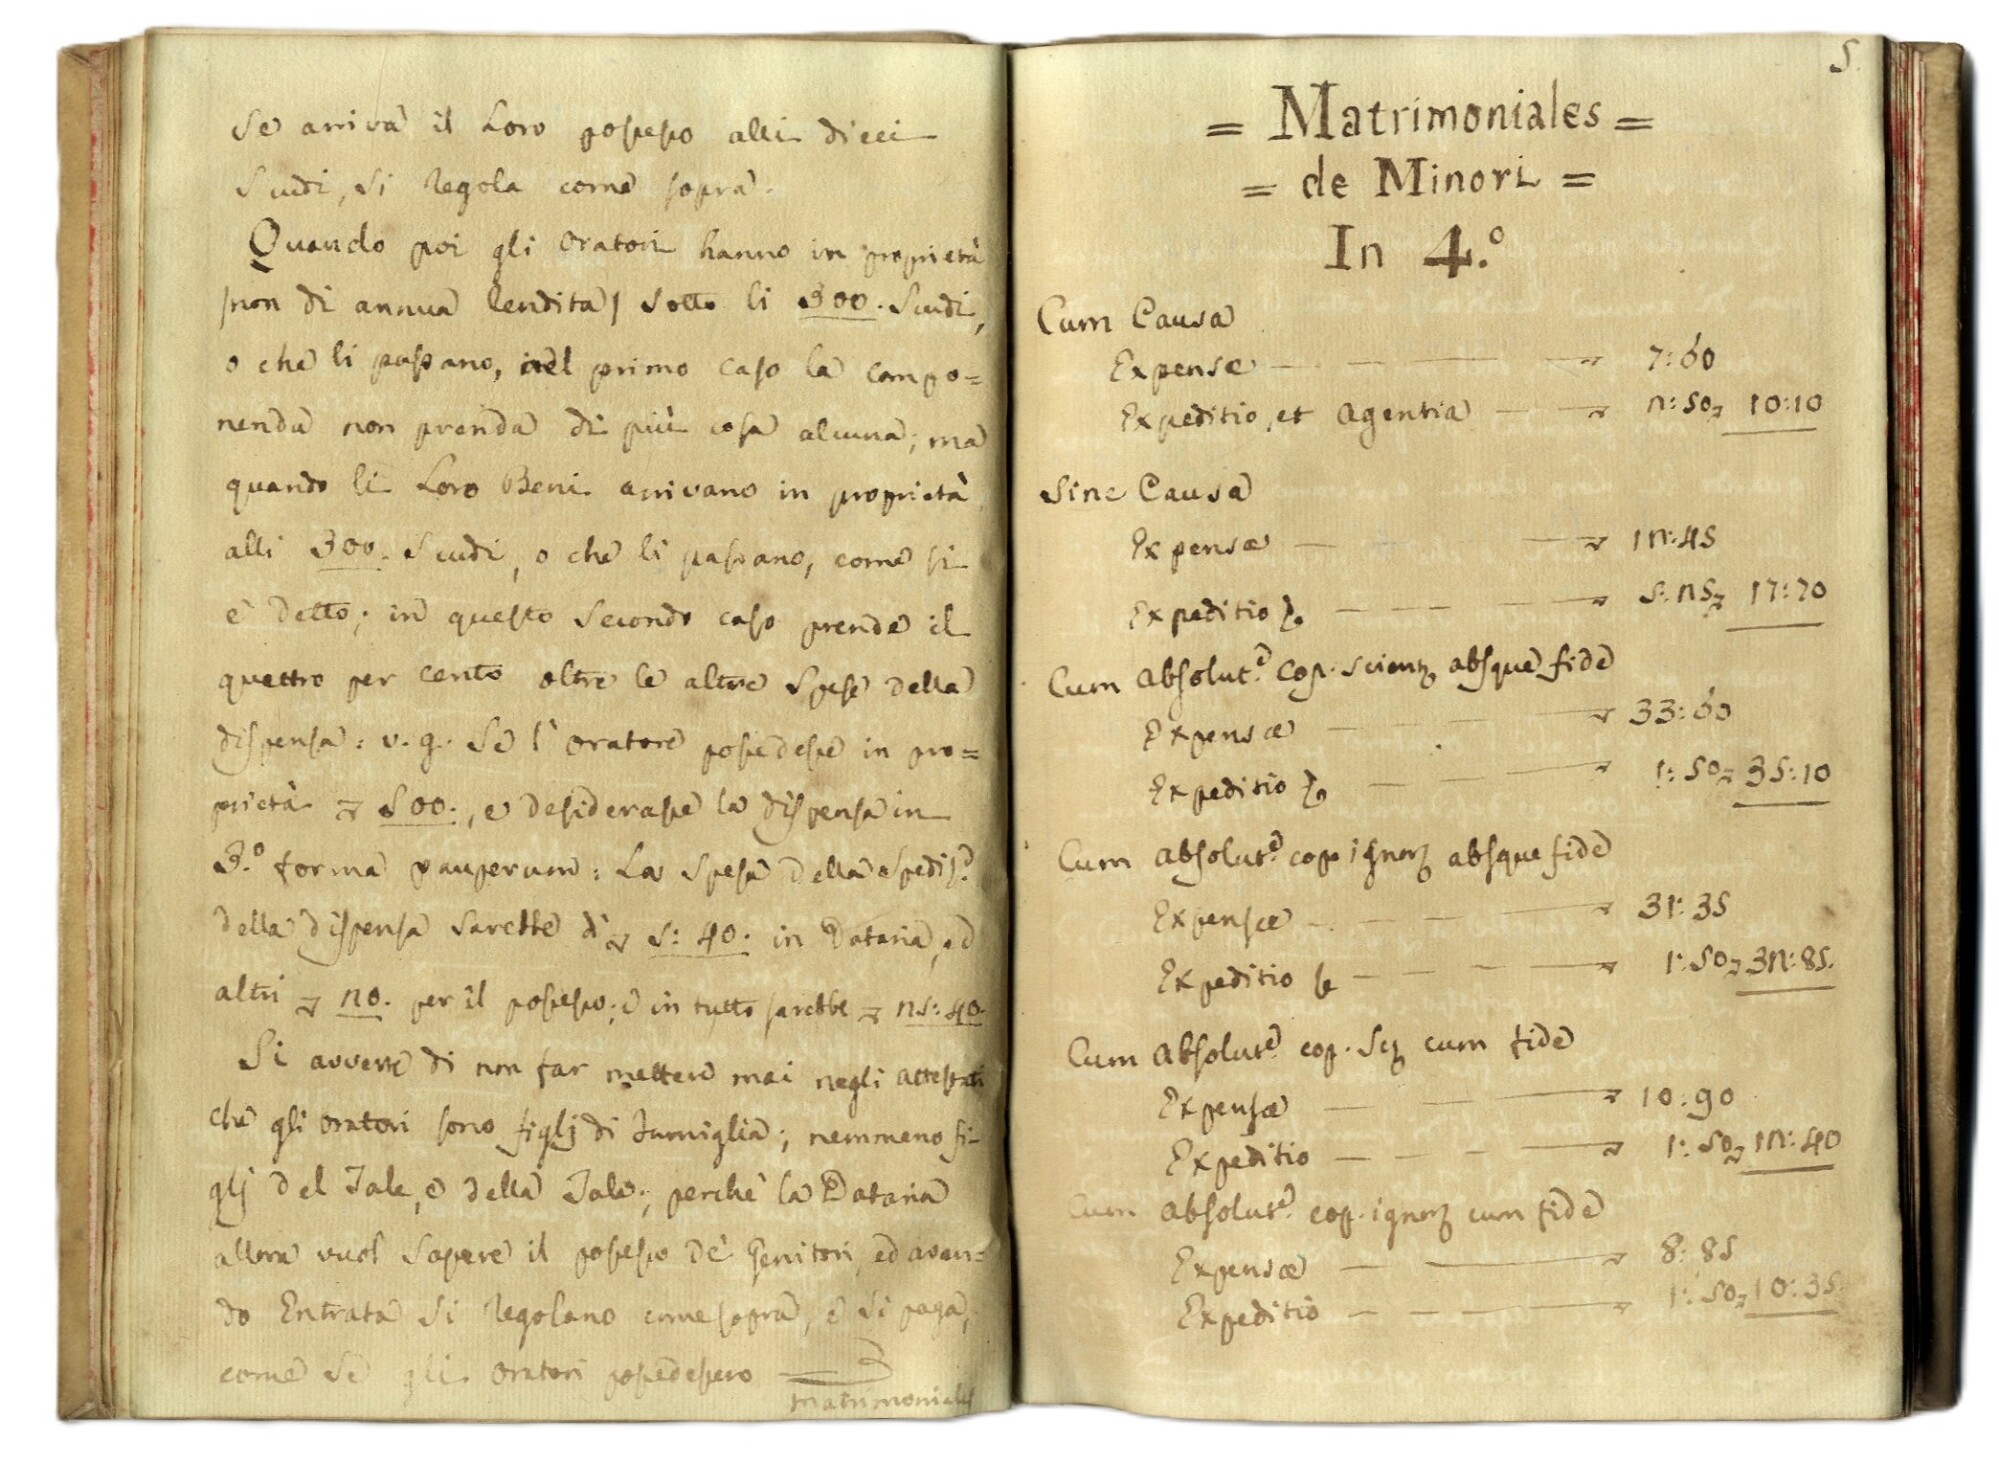 Se arriva il Loro possesso alli dieci
Scudi, si regola come sopra.
Quando poi gli Oratori hanno in proprietà
(non di annua rendita) sotto li 300. Scudi,
o che li passano, nel primo caso la compo=
nenda non prende di più cosa alcuna; ma
quando li Loro Beni arrivano in proprietà
alli 300. Scudi, o che li passano, come si
è detto; in questo secondo caso prende il
quattro per cento oltre le altre spese della
dispensa: v. g. Se l'Oratore possedesse in pro=
prietà 500., e desiderasse la dispensa in
3.º forma pauperum: La spesa della spediz.e
della dispensa sarebbe di 5: 40. in Dataria, ed
altri 20. per il possesso; e in tutto sarebbe 25: 40.
Si averte di non far mettere mai negli attestati
che gli Oratori sono figlj di Famiglia; nemmeno fi-
glj del Tale, e della Tale; perchè la Dataria
allora vuol sapere il possesso de' Genitori, ed aven-
do Entrata si regolano come sopra, e si paga,
come se gli Oratori possedessero
Matrimoniales
5.
= Matrimoniales =
= de Minori =
In 4.º
Cum Causa
Expensæ 7: 60
Expeditio, et Agentia 2: 50 10: 10
Sine Causa
Expensæ 12: 45
Expeditio 5: 25 17: 70
Cum Absolut.e cop. scient. absque fide
Expensæ 33: 60
Expeditio 1: 50 35: 10
Cum Absolut.e cop. ignor. absque fide
Expensæ 31: 35
Expeditio 1: 50 32: 85.
Cum Absolut.e cop. Sc. cum fide
Expensæ 10: 90
Expeditio 1: 50 12: 40
Cum Absolut.e cop. ignor. cum fide
Expensæ 8: 85
Expeditio 1: 50 10: 35.